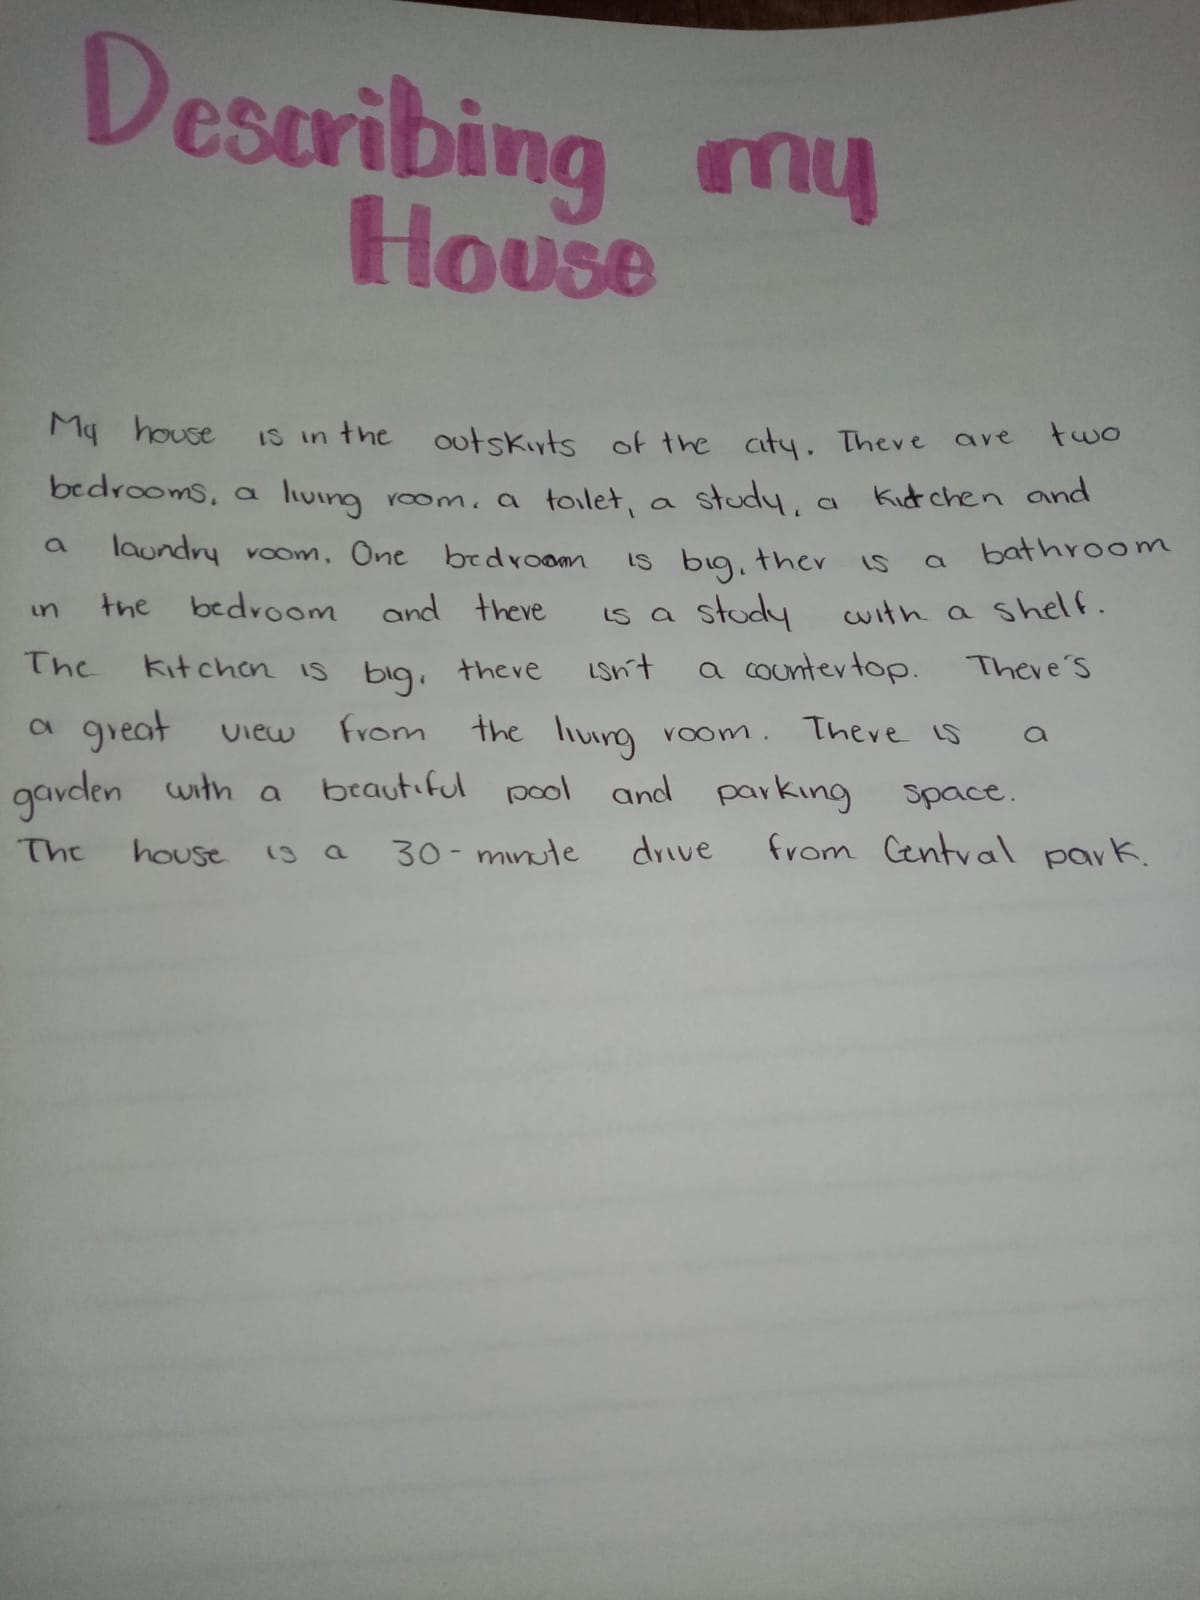 Describing my
House
My house is in the outskirts of the city. There are two
bedrooms, a living room, a toilet, a study, a kitchen and
a laundry room. One bedroom is big, ther is a bathroom
in the bedroom and there is a study with a shelf.
The kitchen is big, there isn't a countertop. There's
a great view from the living room. There is a
garden with a beautiful pool and parking space.
The house is a 30-minute drive from Central park.